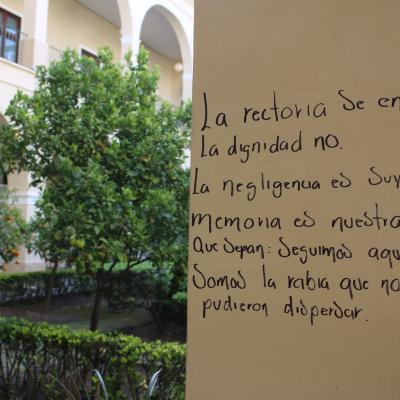 La rectoria se en
La dignidad no.
La negligencia es suy
memoria es nuestra
Que sepan: seguimos aqu
Somos la rabia que no
pudieron dispersar.